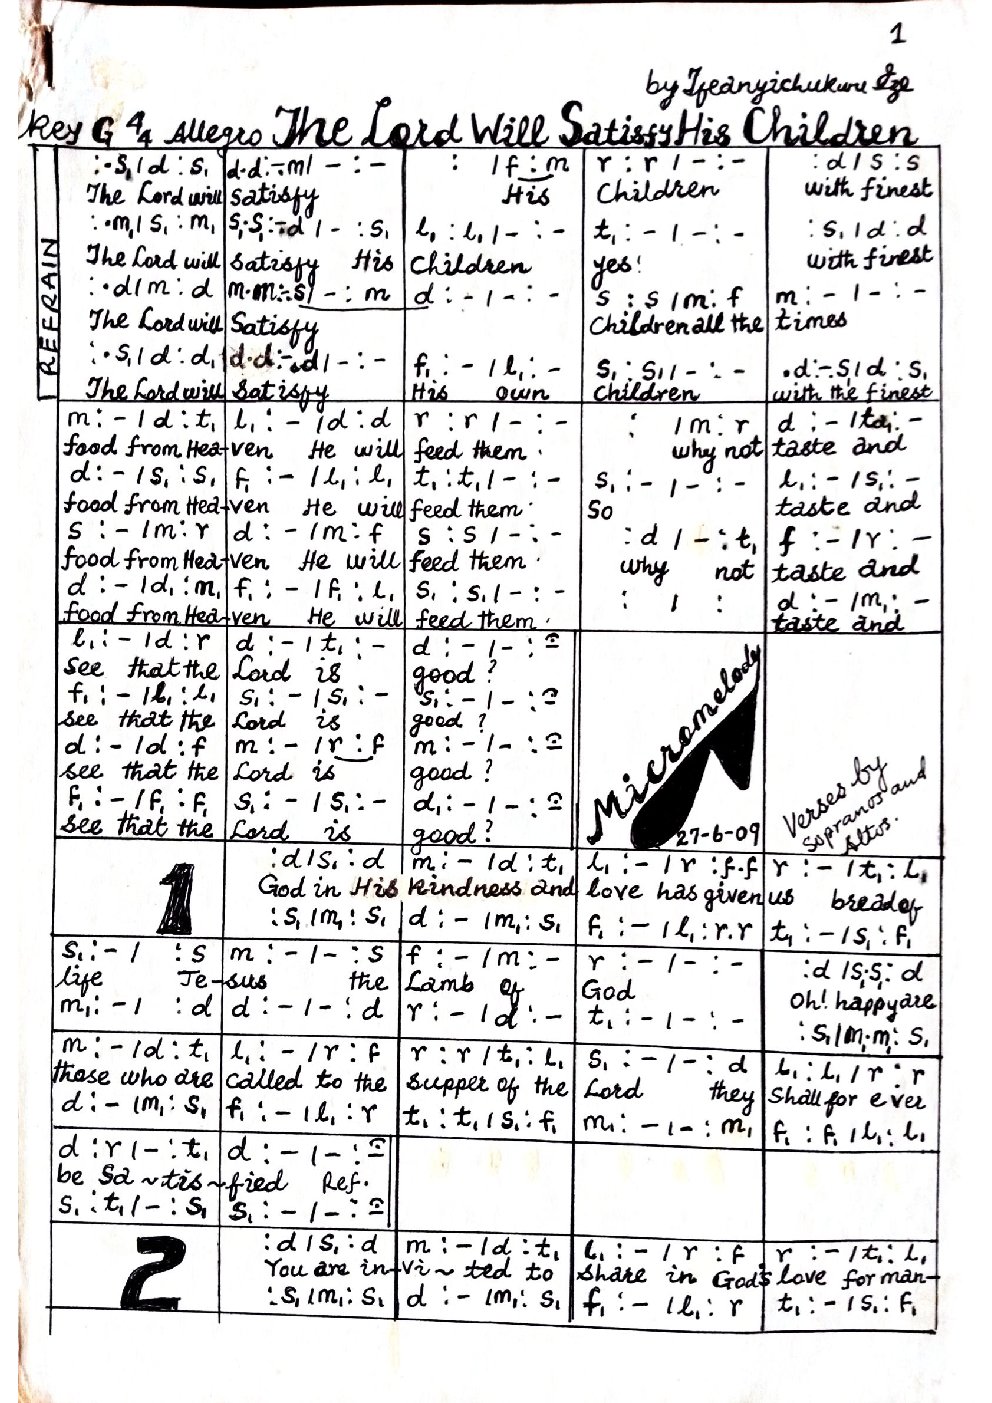 1
by Ifeanyichukwu Eze
Key G 4/4 Allegro The Lord Will Satisfy His Children
REFRAIN
:·s₁/d :s₁ d·d:-·m/ - : - : /f :m r : r / - : - :d / s : s
The Lord will satisfy His Children with finest
:·m₁/s₁ : m₁ s₁·s₁:-·d / - :s₁ l₁ : l₁ / - : - t₁ : - / - : - :s₁ / d : d
The Lord will satisfy His Children yes! with finest
:·d/m : d m·m:-·s/ - : m d : - / - : - s : s /m : f m : - / - : -
The Lord will Satisfy Children all the times
:·s₁/d : d₁ d·d:-·d/ - : - f₁ : - / l₁ : - s₁ : s₁/ - : - ·d:-·s₁/d : s₁
The Lord will Satisfy His own Children with the finest
m : - /d : t₁ l₁ : - /d : d r : r / - : - : /m : r d : - /ta₁ : -
food from Hea-ven He will feed them. why not taste and
d : - /s₁ : s₁ f₁ : - /l₁ : l₁ t₁ : t₁ / - : - s₁ : - / - : - l₁ : - /s₁ : -
food from Hea-ven He will feed them. So taste and
s : - /m : r d : - /m : f s : s / - : - :d / - : t₁ f : - /r : -
food from Hea-ven He will feed them. why not taste and
d : - /d₁ : m₁ f₁ : - /f₁ : l₁ s₁ : s₁ / - : - : / : d : - /m₁ : -
food from Hea-ven He will feed them. taste and
l₁ : - /d : r d : - / t₁ : - d : - / - : -
see that the Lord is good?
f₁ : - /l₁ : l₁ s₁ : - /s₁ : - s₁ : - / - : -
see that the Lord is good?
d : - /d : f m : - /r : f m : - / - : -
see that the Lord is good?
f₁ : - /f₁ : f₁ s₁ : - / s₁ : - d₁ : - / - : -
see that the Lord is good?
Micromelody
27-6-09
Verses by
Sopranos and
Altos.
1
:d/s₁ : d m : - /d : t₁ l₁ : - / r : f·f r : - / t₁ : l₁
God in His kindness and love has given us bread of
:s₁/m₁ : s₁ d : - /m₁ : s₁ f₁ : - / l₁ : r·r t₁ : - /s₁ : f₁
s₁ : - / : s m : - / - : s f : - /m : - r : - / - : - :d /s₁·s₁ : d
life Je-sus the Lamb of God Oh! happy are
m₁ : - / : d d : - / - : d r : - /d : - t₁ : - / - : - :s₁/m₁·m₁ : s₁
m : - /d : t₁ l₁ : - / r : f r : r / t₁ : l₁ s₁ : - / - : d l₁ : l₁ / r : r
those who are called to the supper of the Lord they shall for ever
d : - /m₁ : s₁ f₁ : - /l₁ : r t₁ : t₁ / s₁ : f₁ m₁ : - / - : m₁ f₁ : f₁ / l₁ : l₁
d : r / - : t₁ d : - / - : -
be Sa~tis~fied Ref.
s₁ : t₁ / - : s₁ s₁ : - / - : -
2
:d / s₁ : d m : - /d : t₁ l₁ : - / r : f r : - / t₁ : l₁
You are in-vi~ted to share in God's love for man-
:s₁ /m₁ : s₁ d : - /m₁ : s₁ f₁ : - / l₁ : r t₁ : - / s₁ : f₁